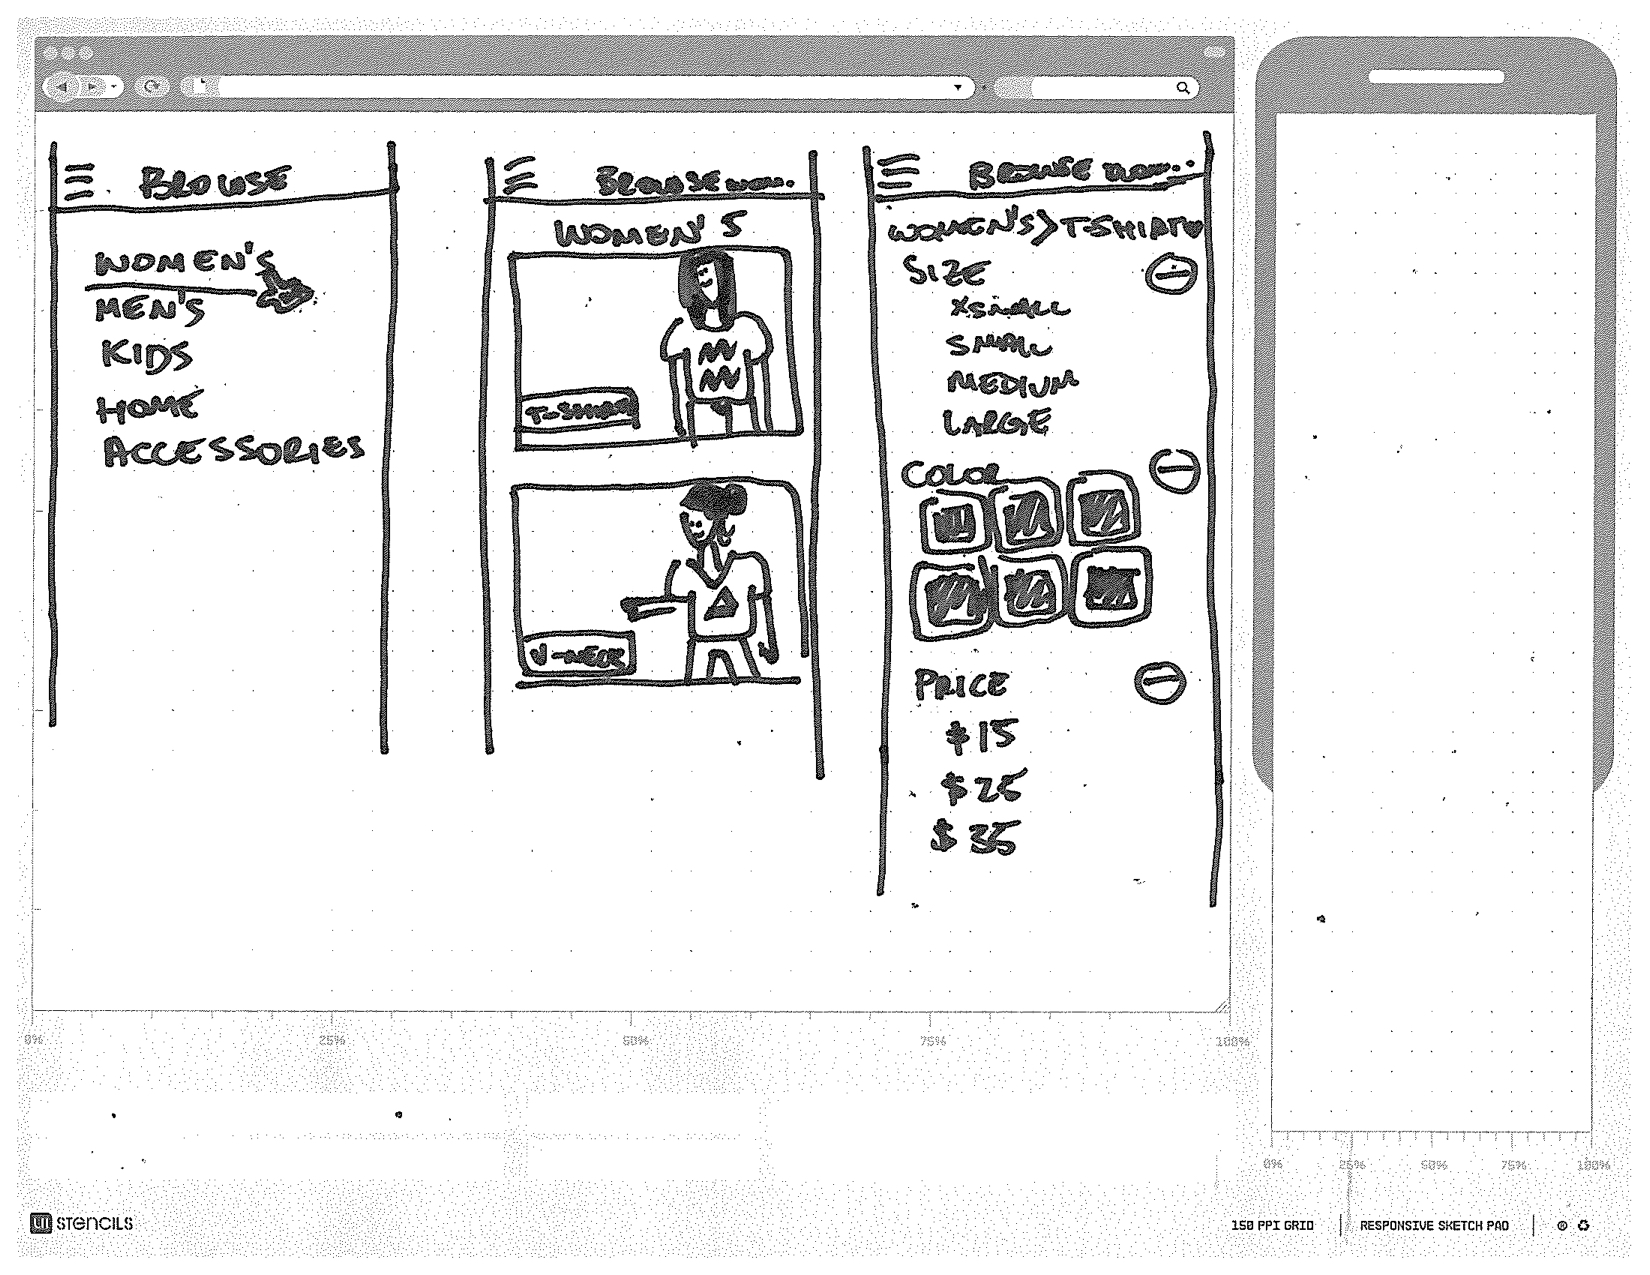 BROWSE
WOMEN'S
MEN'S
KIDS
HOME
ACCESSORIES
BROWSE WOM.
WOMEN'S
T-SHIRT
V-NECK
BROWSE
WOMEN'S>T-SHIRT
SIZE
XSMALL
SMALL
MEDIUM
LARGE
COLOR
PRICE
$15
$25
$35
0% 25% 50% 75% 100%
0% 25% 50% 75% 100%
UI STENCILS
150 PPI GRID | RESPONSIVE SKETCH PAD